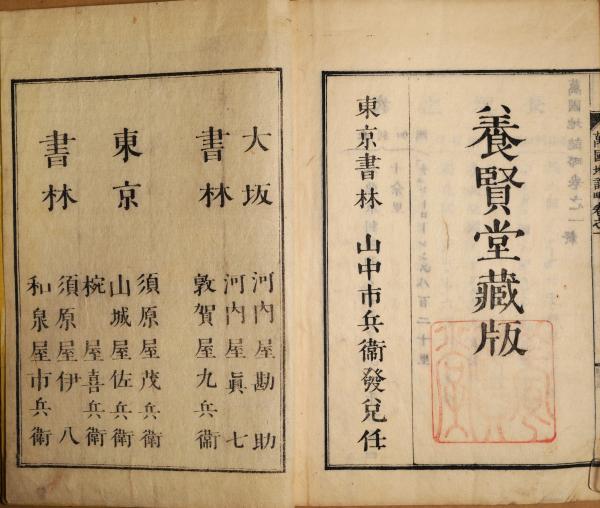 萬國地誌略卷之一終
萬國地誌略卷之一
養賢堂藏版
東京書林 山中市兵衞發兌任
大坂
書林
河内屋勘助
河内屋眞七
敦賀屋九兵衞
東京
書林
須原屋茂兵衞
山城屋佐兵衞
椀屋喜兵衞
須原屋伊八
和泉屋市兵衞